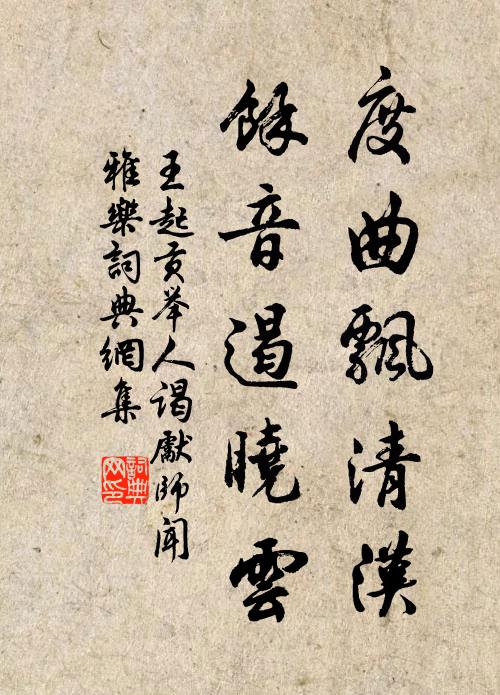 度曲飄清漢
餘音遏曉雲
王起貢举人謁先師聞
雅樂詞典網集
詞典
网印